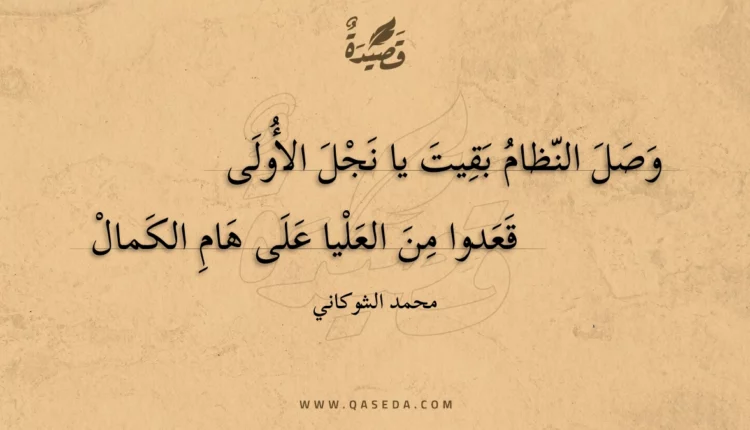 قَصِيدَةٌ
وَصَلَ النّظامُ بَقِيتَ يا نَجْلَ الأُولَى
قَعَدوا مِنَ العَلْيا عَلَى هَامِ الكَمالْ
محمد الشوكاني
WWW.QASEDA.COM